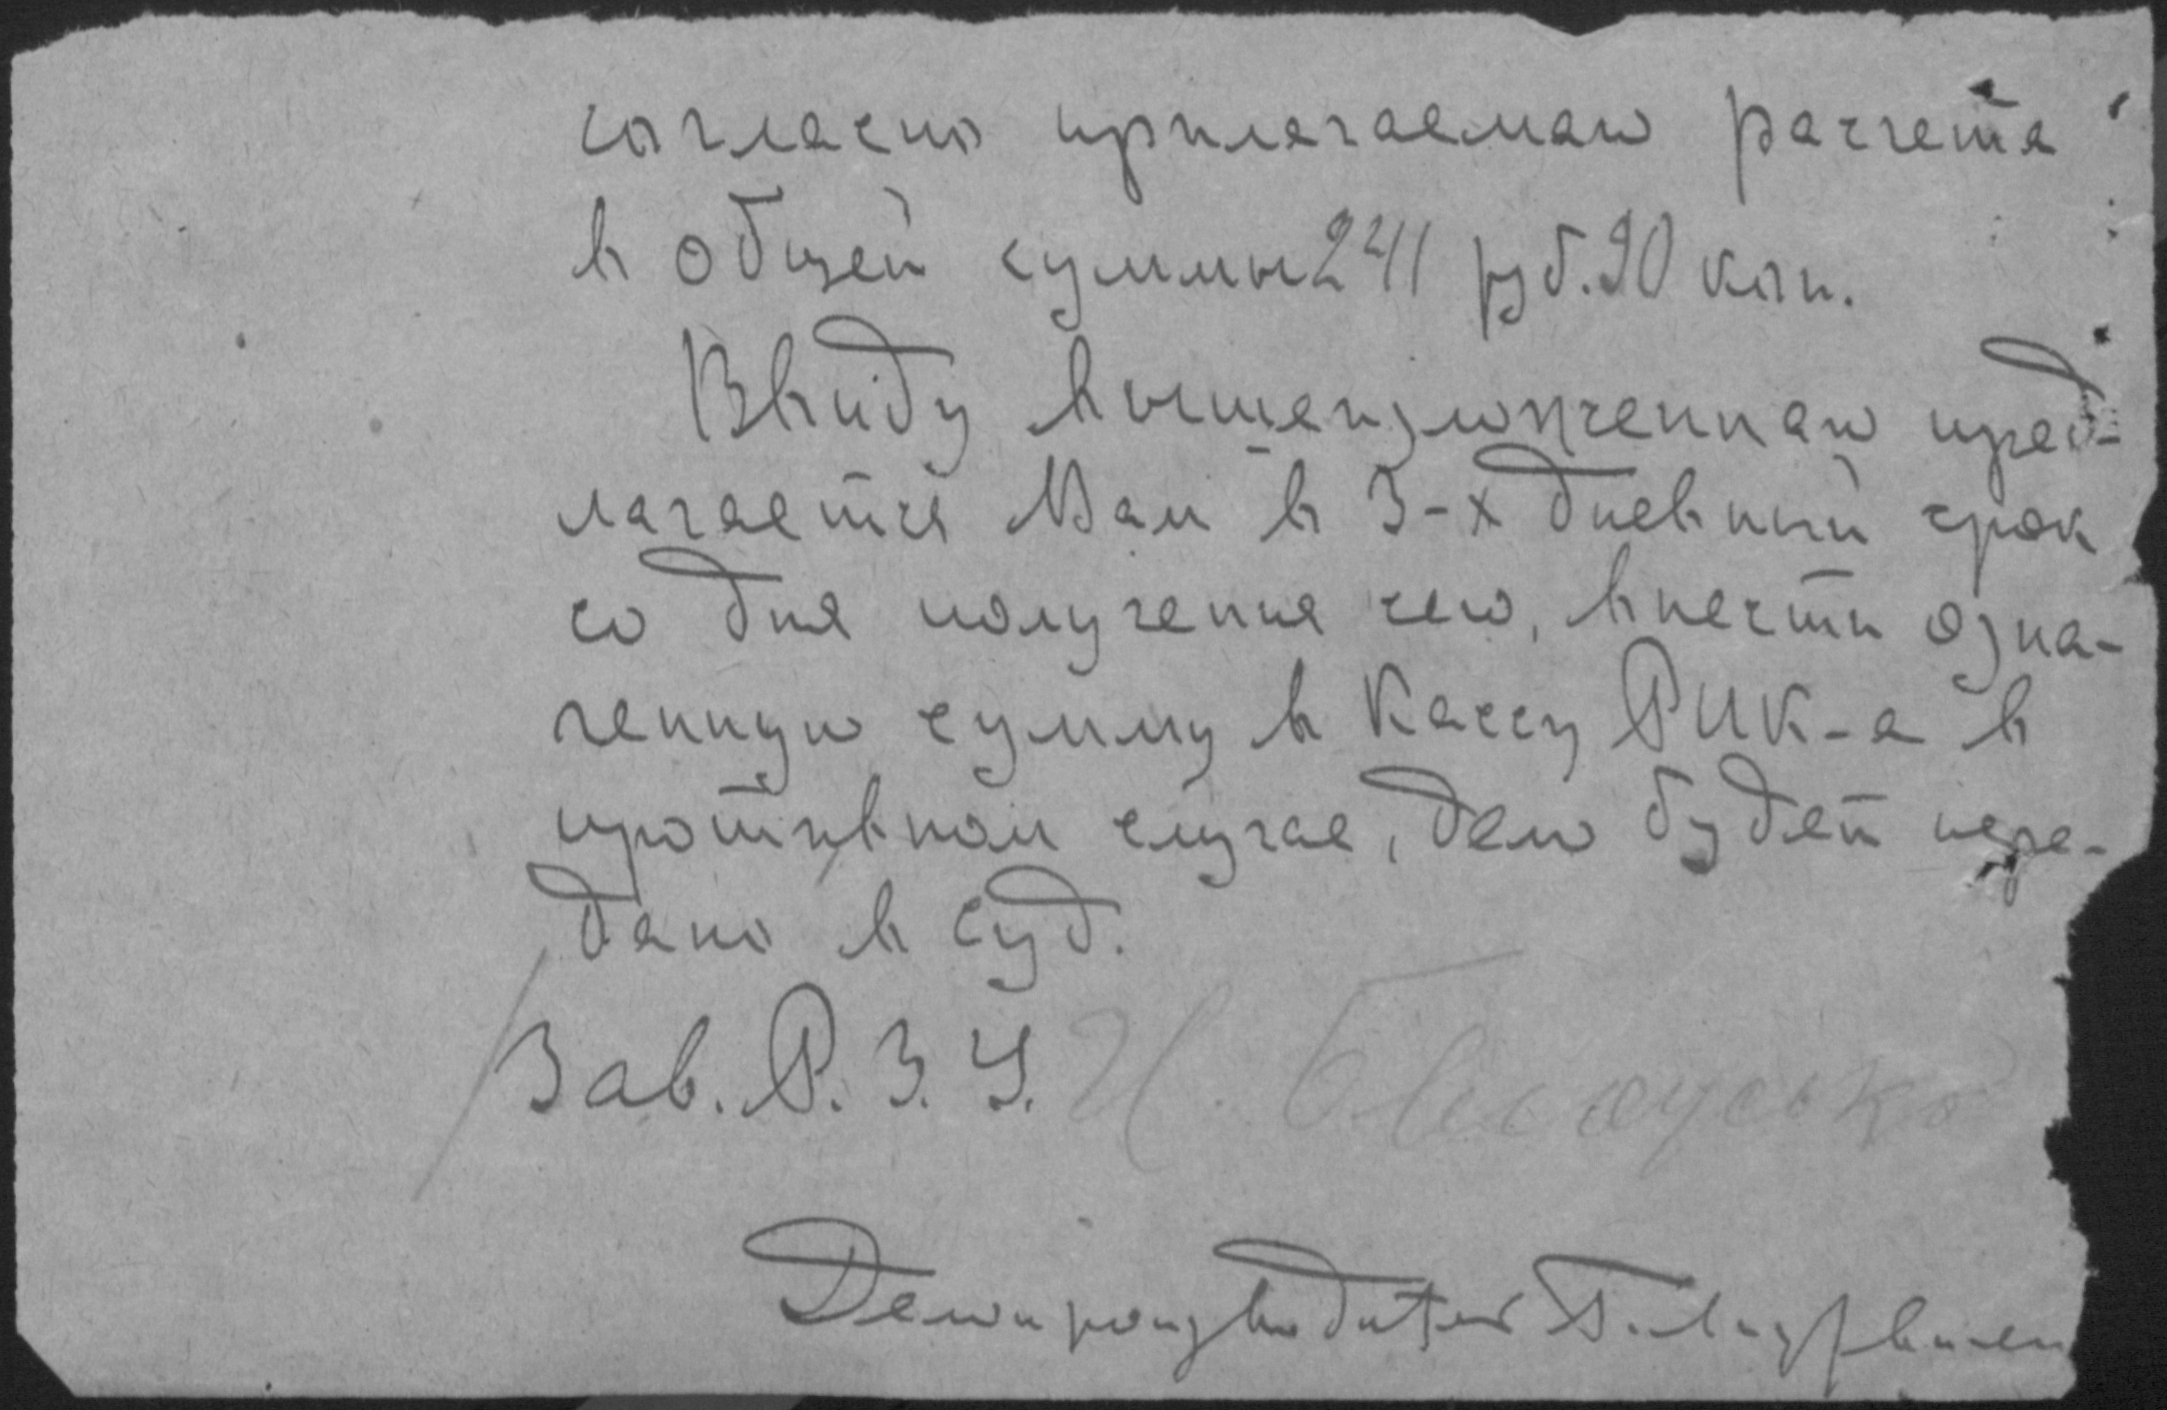 согласно прилагаемаю расчета
в общей суммы 241 руб. 90 коп.
Ввиду вышеизложеннаю пред-
лагается Вам в 3-х дневный срок
со дня получения сего, внести озна-
ченную сумму в кассу РИК-а в
противном случае, дело будет пере-
дано в суд.
Зав. Р. З. У.
Делопроизводитель